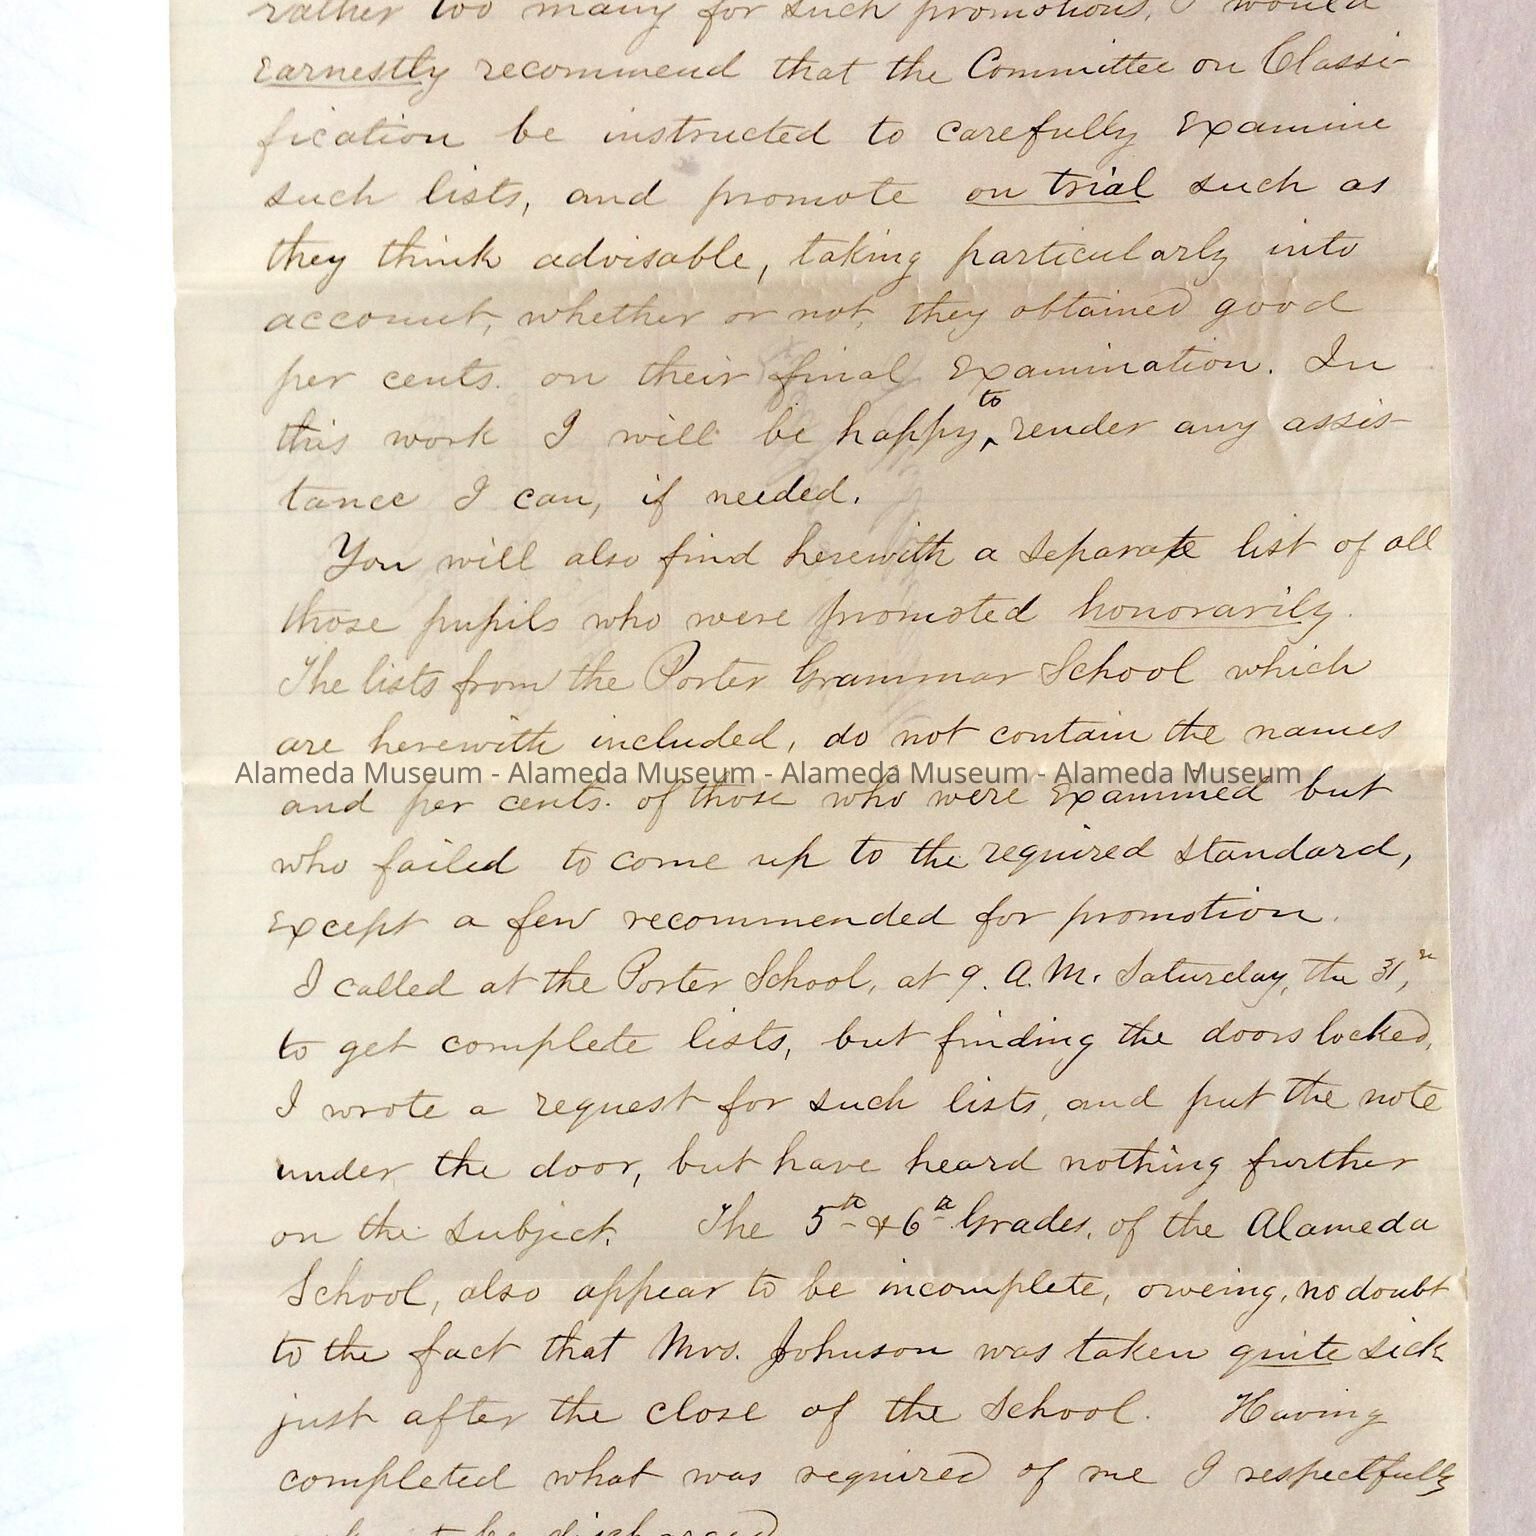 rather too many for such promotions, I would
earnestly recommend that the Committee on Classi-
fication be instructed to carefully examine
such lists, and promote on trial such as
they think advisable, taking particularly into
account, whether or not, they obtained good
per cents. on their final examination. In
this work I will be happy to render any assis-
tance I can, if needed.
You will also find herewith a separate list of all
those pupils who were promoted honorarily.
The lists from the Porter Grammar School which
are herewith included, do not contain the names
Alameda Museum - Alameda Museum - Alameda Museum - Alameda Museum
and per cents. of those who were examined but
who failed to come up to the required standard,
except a few recommended for promotion.
I called at the Porter School, at 9. A.M. Saturday, the 31,
to get complete lists, but finding the doors locked,
I wrote a request for such lists, and put the note
under the door, but have heard nothing further
on the subject. The 5th & 6th Grades, of the Alameda
School, also appear to be incomplete, oweing, no doubt
to the fact that Mrs. Johnson was taken quite sick
just after the close of the School. Having
completed what was required of me I respectfully
to be discharged